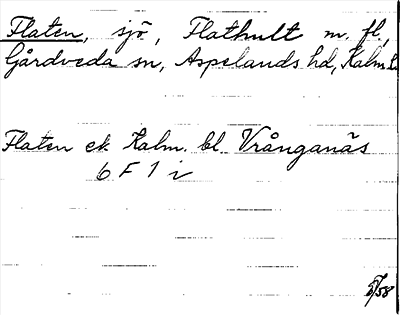 Flaten, sjö, Flathult m. fl.,
Gårdveda sn, Aspelands hd, Kalm.
Flaten ek. Kalm. bl. Vrånganäs
6 F 1 i